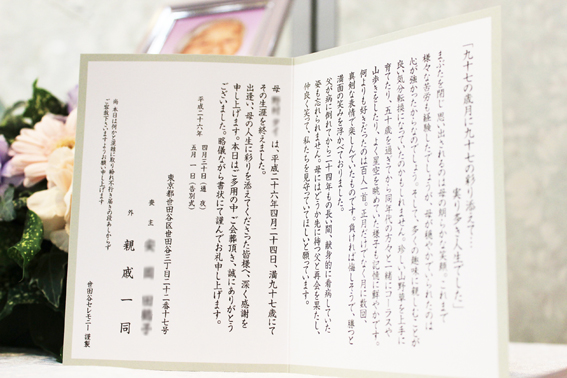 「九十七の歳月に九十七の彩りを添えて…
実り多き人生でした」
まぶたを閉じ 思い出されるのは母の朗らかな笑顔。これまで
様々な苦労も経験したでしょうが、母が穏やかでいられたのは
心が強かったからなのでしょう。そして、多くの趣味に親しむことが
良い気分転換になっていたのかもしれません。珍しい山野草を上手に
育てたり、五十歳を過ぎてから同年代の方々と一緒にコーラスや
山歩きをしたり。よく星空を眺めていた様子も記憶に鮮やかです。
何よりも好きだったのは百人一首。正月だけでなく月に数回、
真剣な表情で楽しんでいたものです。負ければ悔しそうで、勝つと
満面の笑みを浮かべておりました。
父が病に倒れてから二十四年もの長い間、献身的に看病していた
姿も忘れられません。母にはどうか先に待つ父と再会を果たし、
仲良く笑って、私たちを見守っていてほしいと願っています。
母 は、平成二十六年四月二十四日、満九十七歳にて
その生涯を終えました。
出逢い、母の人生に彩りを添えてくださった皆様へ、深く感謝を
申し上げます。本日はご多用の中 ご会葬頂き、誠にありがとう
ございました。略儀ながら書状にて謹んでお礼申し上げます。
平成二十六年 四月三十日(通夜)
五月 一日(告別式)
東京都世田谷区世田谷三丁目二十二番十七号
喪主
外 親戚一同
尚 本日は何かと混雑に取り紛れ不行き届きの段 あしからず
ご容赦下さいますようお願い申し上げます
世田谷セレモニー謹製